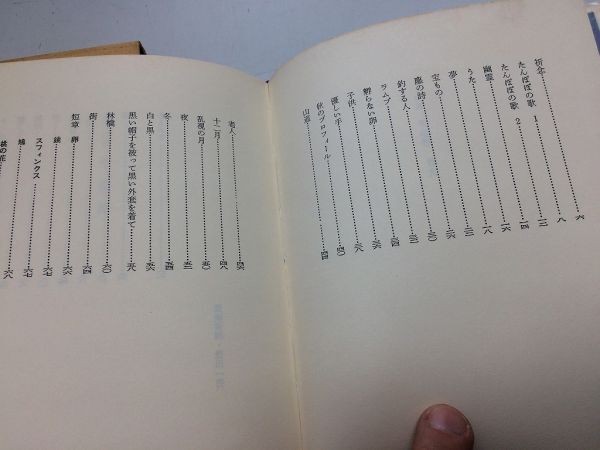 祈念…………六
たんぽぽの歌 1…………八
たんぽぽの歌 2…………一二
幽霊…………一四
うた…………一六
夢…………一八
宝もの…………二〇
塵の詩…………二三
釣する人…………二四
ラムプ…………二六
孵らない卵…………三六
子供…………三八
優しい手…………四〇
秋のプロフィール
山査…………四四
老人…………四六
十二月…………四八
乱視の月…………五〇
夜…………五二
冬…………五四
白と黒…………五六
黒い帽子を被って黒い外套を着て…………五八
林檎…………六〇
街…………六四
短章 卵…………六六
鏡…………六七
スフィンクス…………六七
鳩…………六八
桃の花